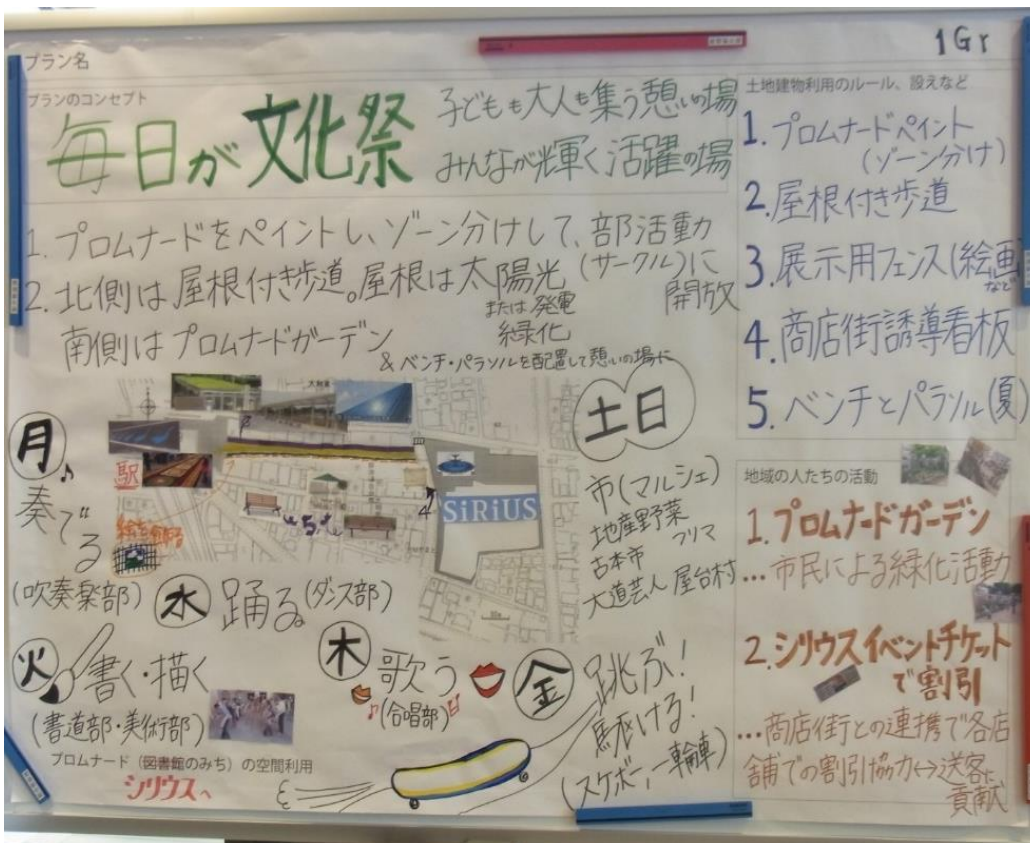 1Gr
プラン名
プランのコンセプト
毎日が文化祭
子どもも大人も集う憩いの場
みんなが輝く活躍の場
1. プロムナードをペイントし、ゾーン分けして、部活動
(サークル)に
開放
2. 北側は屋根付き歩道。屋根は太陽光
または 発電
緑化
南側はプロムナードガーデン
& ベンチ・パラソルを配置して憩いの場に
月
奏でる
(吹奏楽部)
駅
絵を飾る
SiRiUS
4
5
水 踊る。(ダンス部)
火 書く・描く
(書道部・美術部)
木 歌う
(合唱部)
金 跳ぶ!
駆ける!
(スケボー、一輪車)
土日
市(マルシェ)
地産野菜
フリマ
古本市
大道芸人 屋台村
プロムナード(図書館のみち)の空間利用
シリウスへ
土地建物利用のルール、設えなど
1. プロムナードペイント
(ゾーン分け)
2. 屋根付き歩道
3. 展示用フェンス(絵画など)
4. 商店街誘導看板
5. ベンチとパラソル(夏)
地域の人たちの活動
1. プロムナードガーデン
...市民による緑化活動
2. シリウスイベントチケット
で割引
...商店街との連携で各店
舗での割引協力↔送客に
貢献